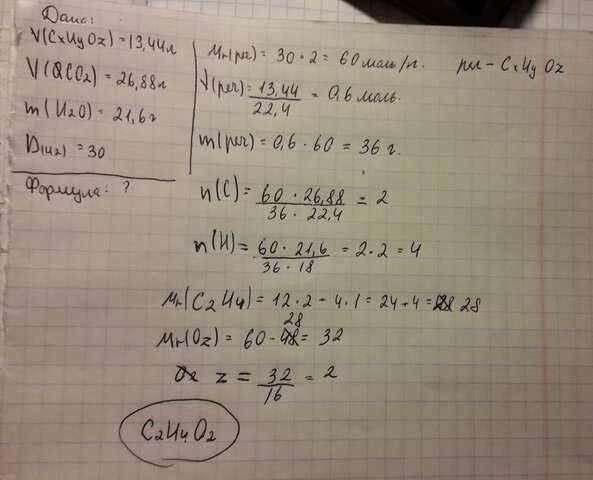 Дано:
V(CxHyOz) = 13,44л
V(CO2) = 26,88л
m(H2O) = 21,6г
D(H2) = 30
Формула: ?
Mr(рег) = 30 · 2 = 60 моль/г. рег - CxHyOz
V(рег) = 13,44 / 22,4 = 0,6 моль.
m(рег) = 0,6 · 60 = 36 г.
n(C) = 60 · 26,88 / 36 · 22,4 = 2
n(H) = 60 · 21,6 / 36 · 18 = 2 · 2 = 4
Mr(C2H4) = 12 · 2 - 4 · 1 = 24 + 4 = 28
28
Mr(Oz) = 60 - 48 = 32
z = 32 / 16 = 2
C2H4O2